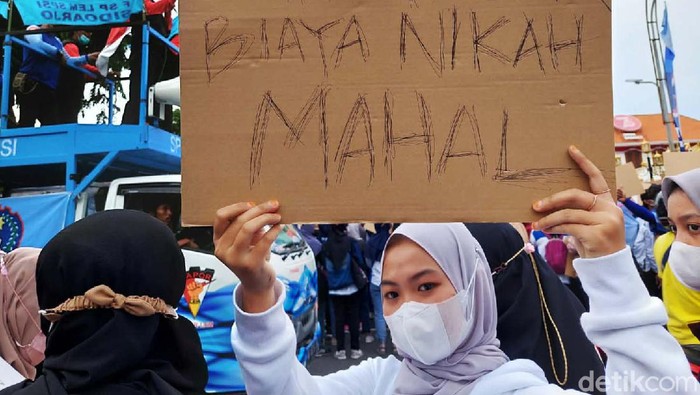 F SP LEM SPSI
SIDOARJO
BIAYA NIKAH
MAHAL
SI
SP
detikcom